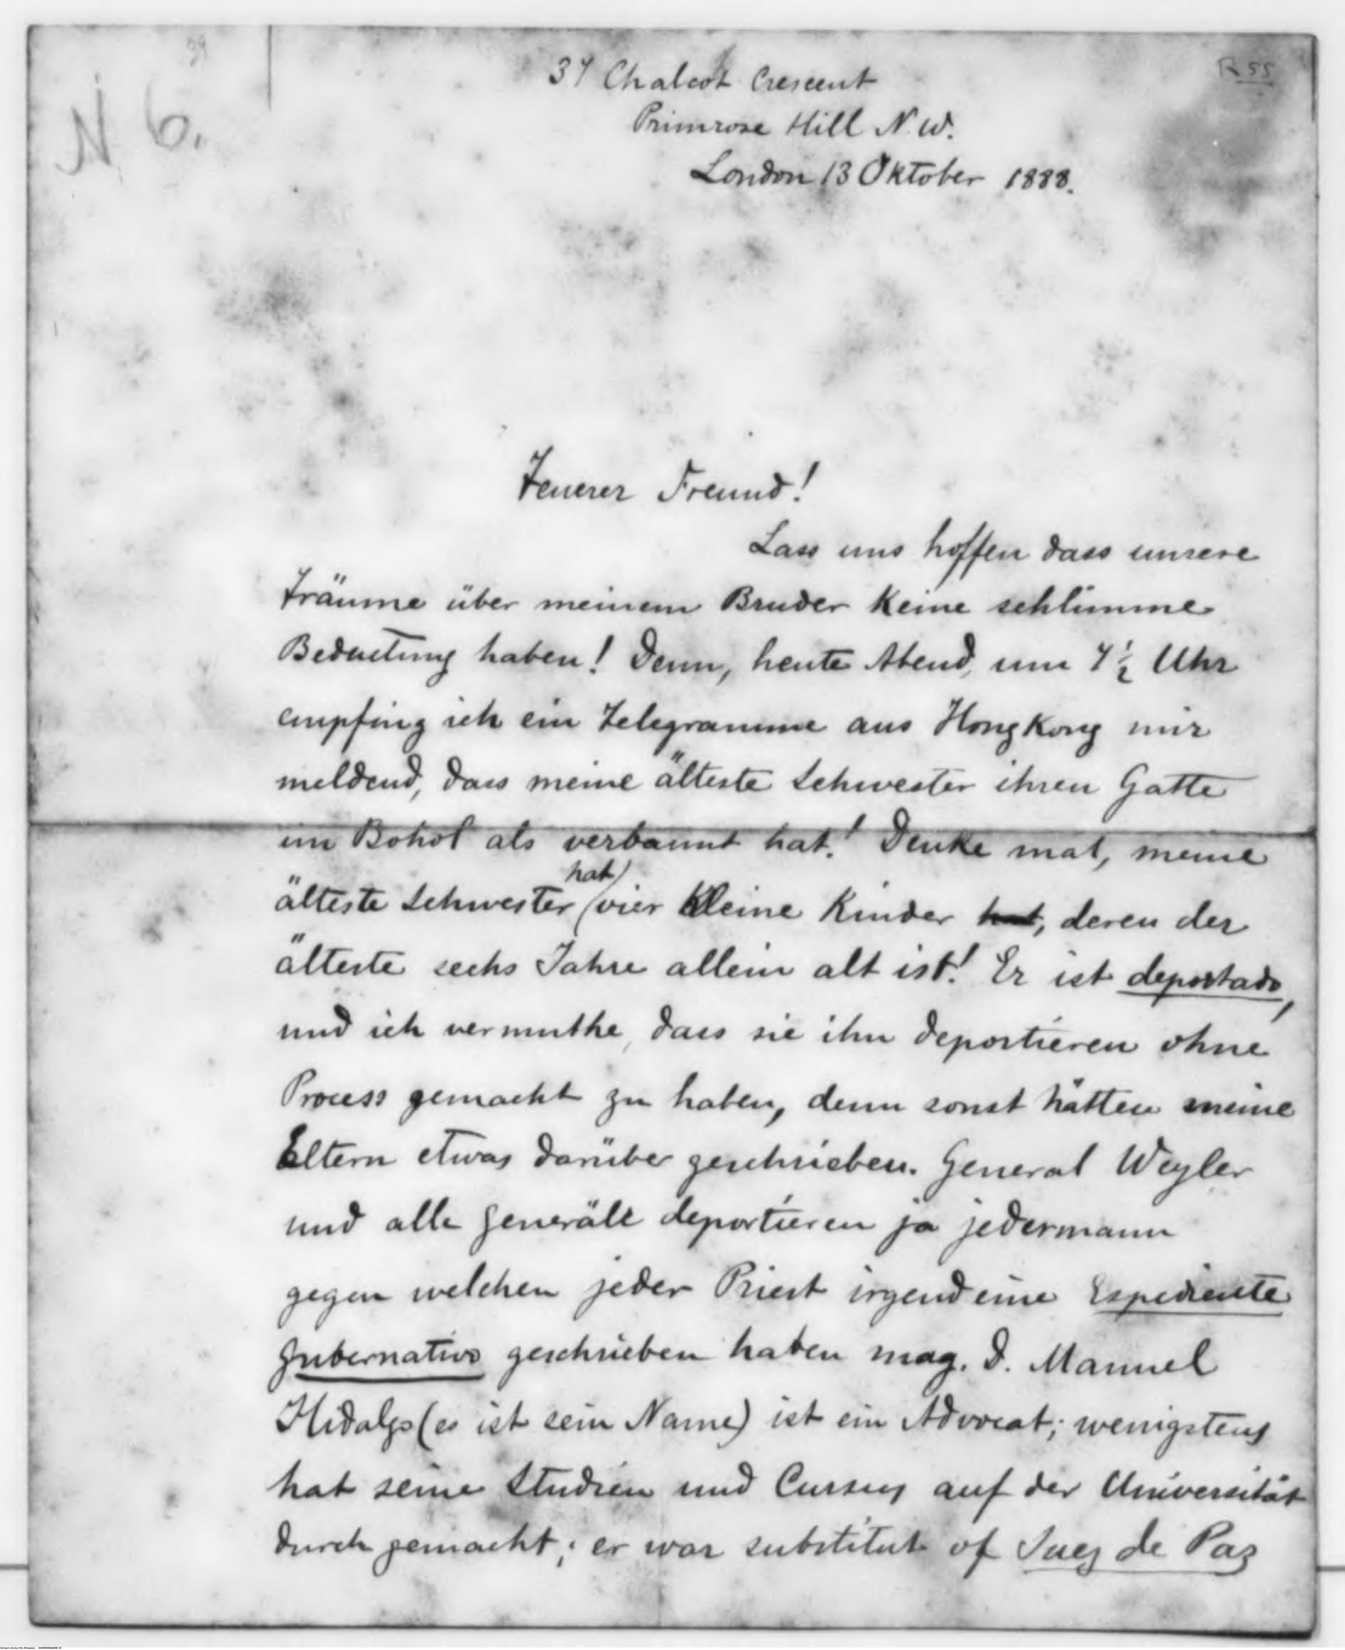 39
N 6.
R 55
37 Chalcot Crescent
Primrose Hill N. W.
London 13 Oktober 1888.
Teuerer Freund!
Lass uns hoffen dass unsere
Träume über meinem Bruder Keine schlimme
Bedeutung haben! Denn, heute Abend, um 7 1/2 Uhr
empfing ich ein Telegramme aus HongKong mir
meldend, dass meine älteste Schwester ihren Gatte
im Bohol als verbannt hat! Denke mal, meine
älteste Schwester (hat) vier Kleine Kinder hat, deren der
älteste sechs Jahre allein alt ist! Er ist deportado,
und ich vermuthe, dass sie ihn deportieren ohne
Process gemacht zu haben, denn sonst hätten meine
Eltern etwas darüber geschrieben. General Weyler
und alle Generäle deportieren ja jedermann
gegen welchen jeder Priest irgend eine Espediente
gubernativo geschrieben haben mag. D. Manuel
Hidalgo (es ist sein Name) ist ein Advocat; wenigstens
hat seine Studien und Cursus auf der Universität
durch gemacht; er war substitut of Juez de Paz